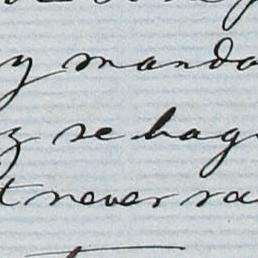 y manda
z se hag
t never ra